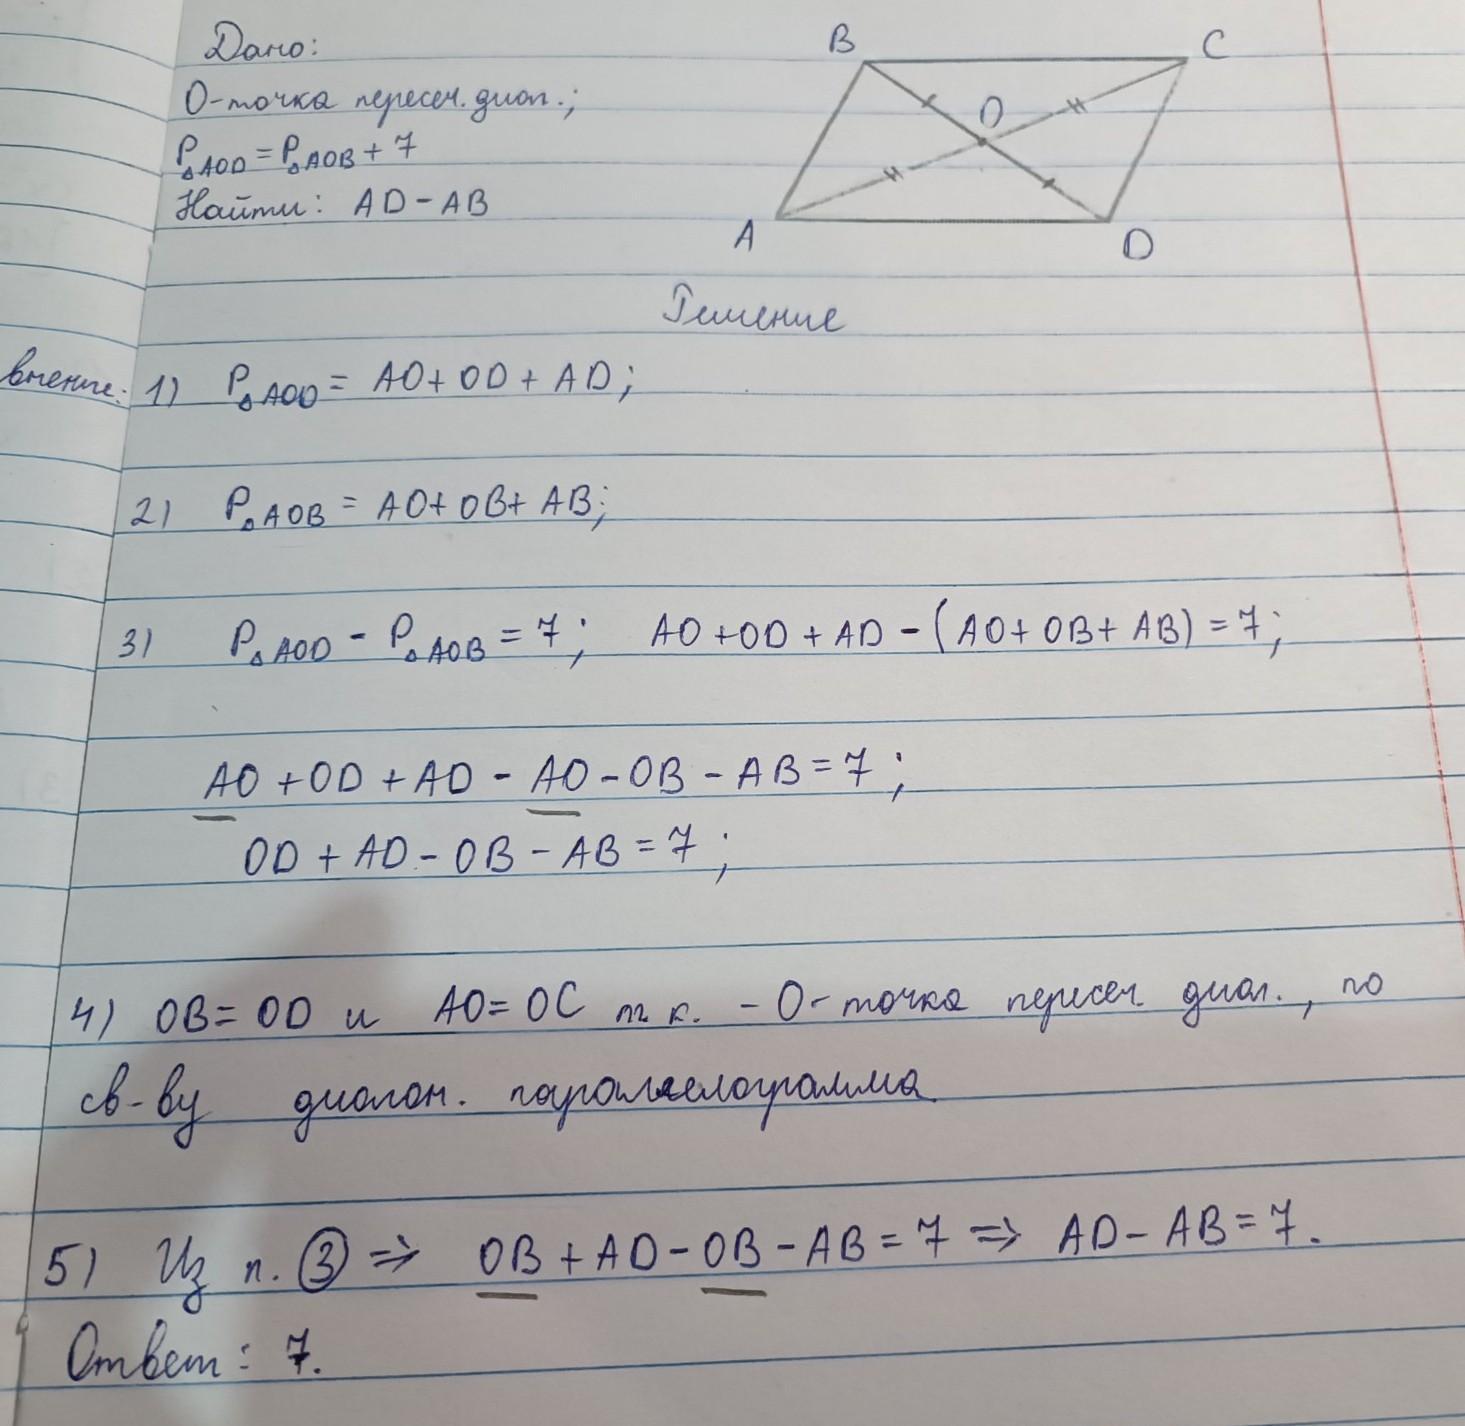 Дано:
O-точка пересеч. диаг.;
P△AOD = P△AOB + 7
Найти: AD - AB
B
C
O
A
D
Решение
внение:
1) P△AOD = AO + OD + AD;
2) P△AOB = AO + OB + AB;
3) P△AOD - P△AOB = 7; AO + OD + AD - (AO + OB + AB) = 7;
AO + OD + AD - AO - OB - AB = 7;
OD + AD - OB - AB = 7;
4) OB = OD и AO = OC т.к. - O-точка пересеч. диаг., по
св-ву диагон. параллелограмма
5) Из п. ③ => OB + AD - OB - AB = 7 => AD - AB = 7.
Ответ: 7.